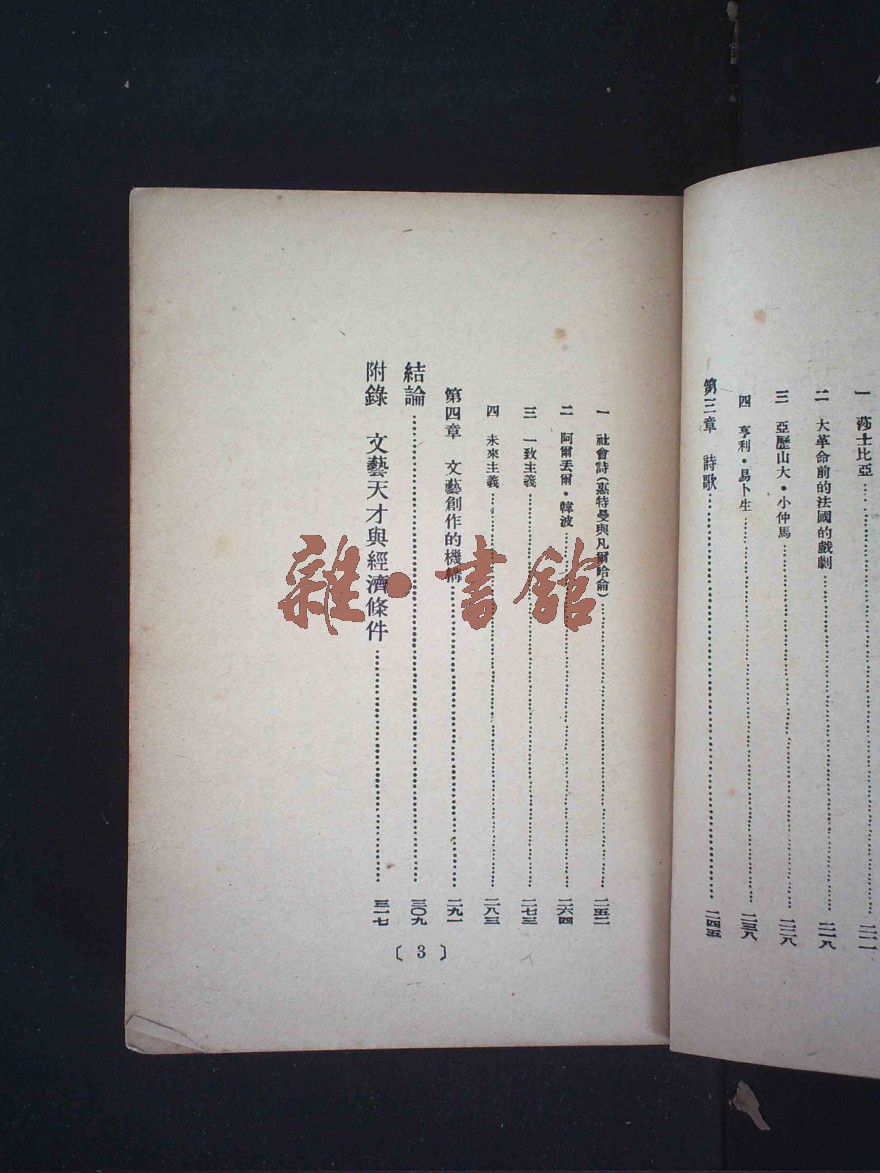 一 莎士比亞……二一一
二 大革命前的法國的戲劇……二一八
三 亞歷山大·小仲馬……二二八
四 亨利·易卜生……二三八
第三章 詩歌……二四五
一 社會詩(惠特曼與凡爾哈侖)……二五二
二 阿爾丟爾·韓波……二六四
三 一致主義……二七三
四 未來主義……二八三
第四章 文藝創作的機構……二九一
結論……三〇九
附錄 文藝天才與經濟條件……三一七
〔3〕
雜·書館